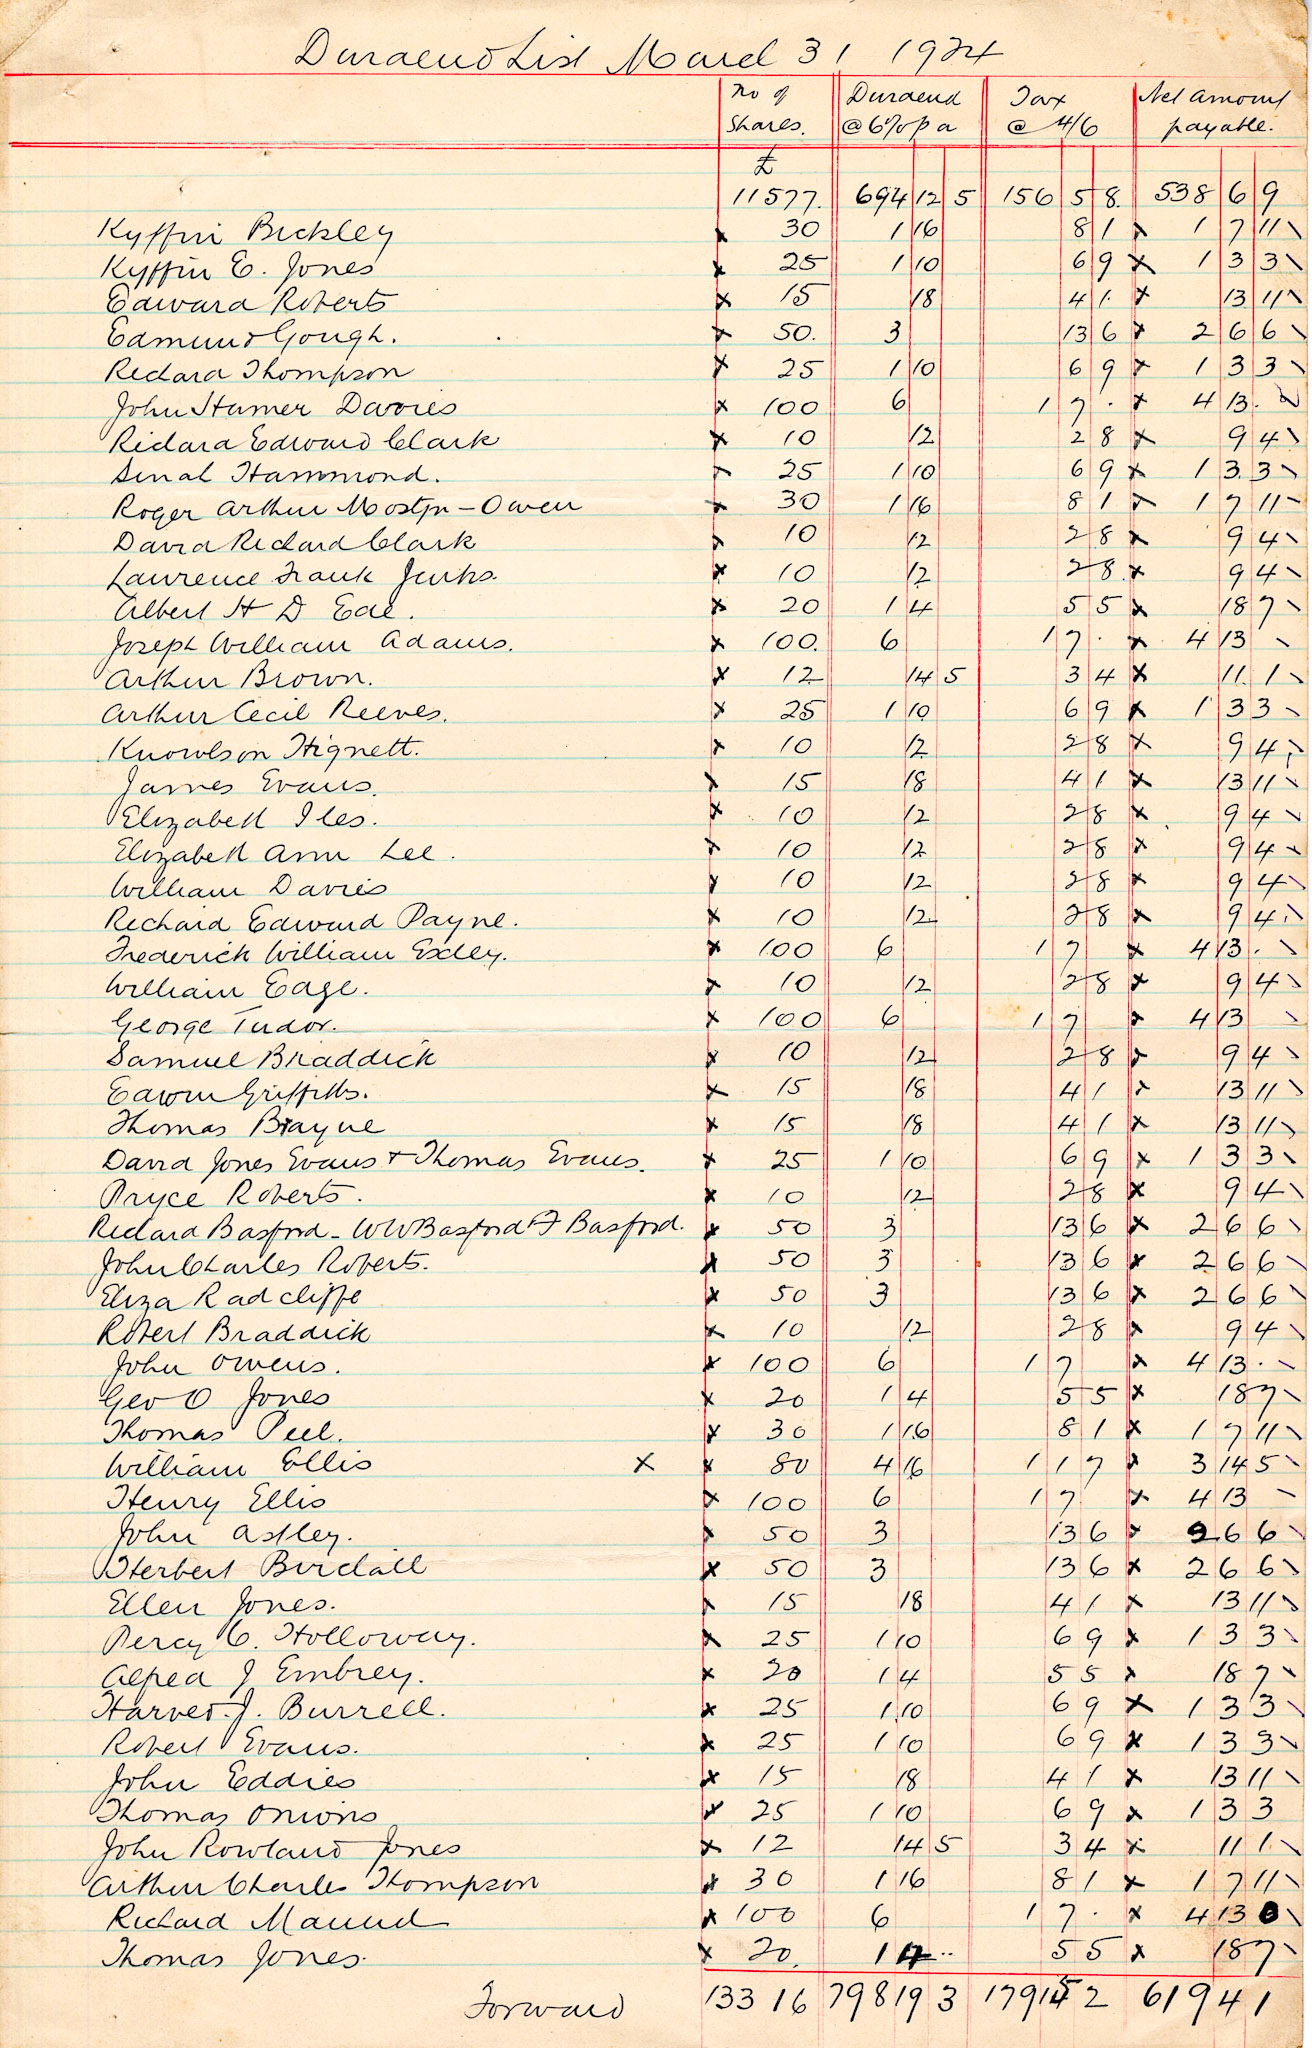 Dividend List March 31 1924
No of Shares. Dividend @ 6% p a Tax @ 4/6 Net Amount payable.
£
11577. 694 12 5 156 5 8. 538 6 9
Kyffin Bickley x 30 1 16 8 1 x 1 7 11
Kyffin E. Jones x 25 1 10 6 9 x 1 3 3
Edward Roberts x 15 18 4 1. x 13 11
Edmund Gough. x 50. 3 13 6 x 2 6 6
Richard Thompson x 25 1 10 6 9 x 1 3 3
John Hamer Davies x 100 6 1 7 . x 4 13 .
Richard Edward Clark x 10 12 2 8 x 9 4
Hammond. x 25 1 10 6 9 x 1 3 3
Roger Arthur Mostyn-Owen x 30 1 16 8 1 x 1 7 11
David Richard Clark x 10 12 2 8 x 9 4
Laurence Frank Jenks. x 10 12 2 8. x 9 4
Albert H D Ede. x 20 1 4 5 5 x 18 7
Joseph William Adams. x 100. 6 1 7 . x 4 13
Arthur Brown. x 12 14 5 3 4 x 11 1
Arthur Cecil Reeves. x 25 1 10 6 9 x 1 3 3
Knowlson Hignett. x 10 12 2 8 x 9 4
James Evans. x 15 18 4 1 x 13 11
Elizabeth Iles. x 10 12 2 8 x 9 4
Elizabeth Ann Lee. x 10 12 2 8 x 9 4
William Davies x 10 12 2 8 x 9 4
Richard Edward Payne. x 10 12 2 8 x 9 4
Frederick William Exley. x 100 6 1 7 x 4 13 .
William Edge. x 10 12 2 8 x 9 4
George Tudor. x 100 6 1 7 x 4 13
Samuel Braddick x 10 12 2 8 x 9 4
Edwin Griffiths. x 15 18 4 1 x 13 11
Thomas Brayne x 15 18 4 1 x 13 11
David Jones Evans + Thomas Evans. x 25 1 10 6 9 x 1 3 3
Pryce Roberts. x 10 12 2 8 x 9 4
Richard Basford - W W Basford + J Basford. x 50 3 13 6 x 2 6 6
John Charles Roberts. x 50 3 13 6 x 2 6 6
Eliza Radcliffe x 50 3 13 6 x 2 6 6
Robert Braddick x 10 12 2 8 x 9 4
John Owens. x 100 6 1 7 x 4 13 .
Geo O Jones x 20 1 4 5 5 x 18 7
Thomas Peel. x 30 1 16 8 1 x 1 7 11
William Ellis x x 80 4 16 1 1 7 x 3 14 5
Henry Ellis x 100 6 1 7 x 4 13
John Astley. x 50 3 13 6 x 2 6 6
Herbert Birchall x 50 3 13 6 x 2 6 6
Ellen Jones. x 15 18 4 1 x 13 11
Percy C. Holloway. x 25 1 10 6 9 x 1 3 3
Alfred J Embrey. x 20 1 4 5 5 x 18 7
J. Burrell. x 25 1 10 6 9 x 1 3 3
Robert Evans. x 25 1 10 6 9 x 1 3 3
John Eddies x 15 18 4 1 x 13 11
Thomas Onions x 25 1 10 6 9 x 1 3 3
John Rowland Jones x 12 14 5 3 4 x 11 1
Arthur Charles Thompson x 30 1 16 8 1 x 1 7 11
Richard Maund x 100 6 1 7 . x 4 13 0
Thomas Jones. x 20. 1 4 .. 5 5 x 18 7
Forward 133 16 798 19 3 179 15 2 619 4 1